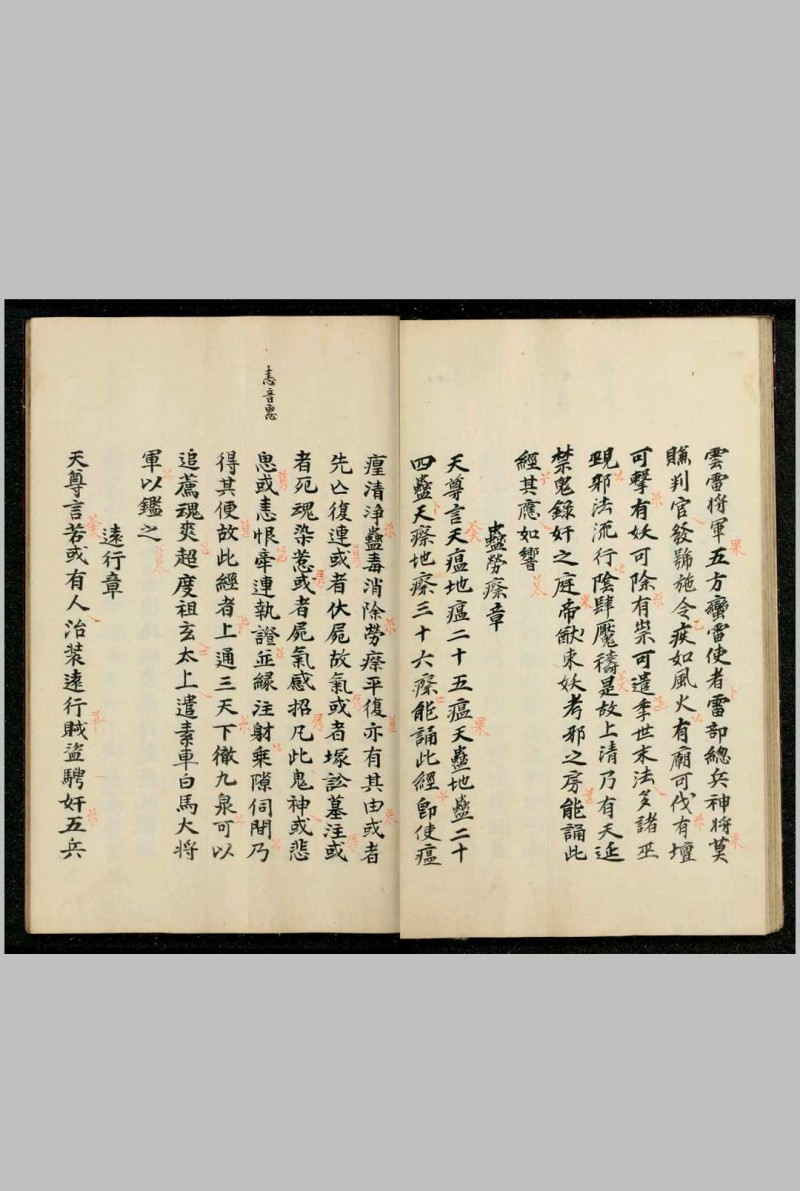 雲雷將軍五方蠻雷使者雷部總兵神將莫
賺判官發號施令疾如風火有廟可伐有壇
可擊有妖可除有祟可遣季世末法多諸巫
覡邪法流行陰肆魘禱是故上清乃有天延
禁鬼錄奸之庭帝猷束妖考邪之房能誦此
經其應如響
蠱勞瘵章
天尊言天瘟地瘟二十五瘟天蠱地蠱二十
四蠱天瘵地瘵三十六瘵能誦此經卽使瘟
㾮清淨蠱毒消除勞瘵平復亦有其由或者
先亾復連或者伏屍故氣或者塚訟墓注或
者死魂染惹或者屍氣感招凡此鬼神或悲
思或恚恨牽連執證並緣注射乘隙伺間乃
得其便故此經者上通三天下徹九泉可以
追薦魂爽超度祖玄太上遣素車白馬大將
軍以鑑之
遠行章
天尊言若或有人治裝遠行賊盜騁奸五兵
恚音恵